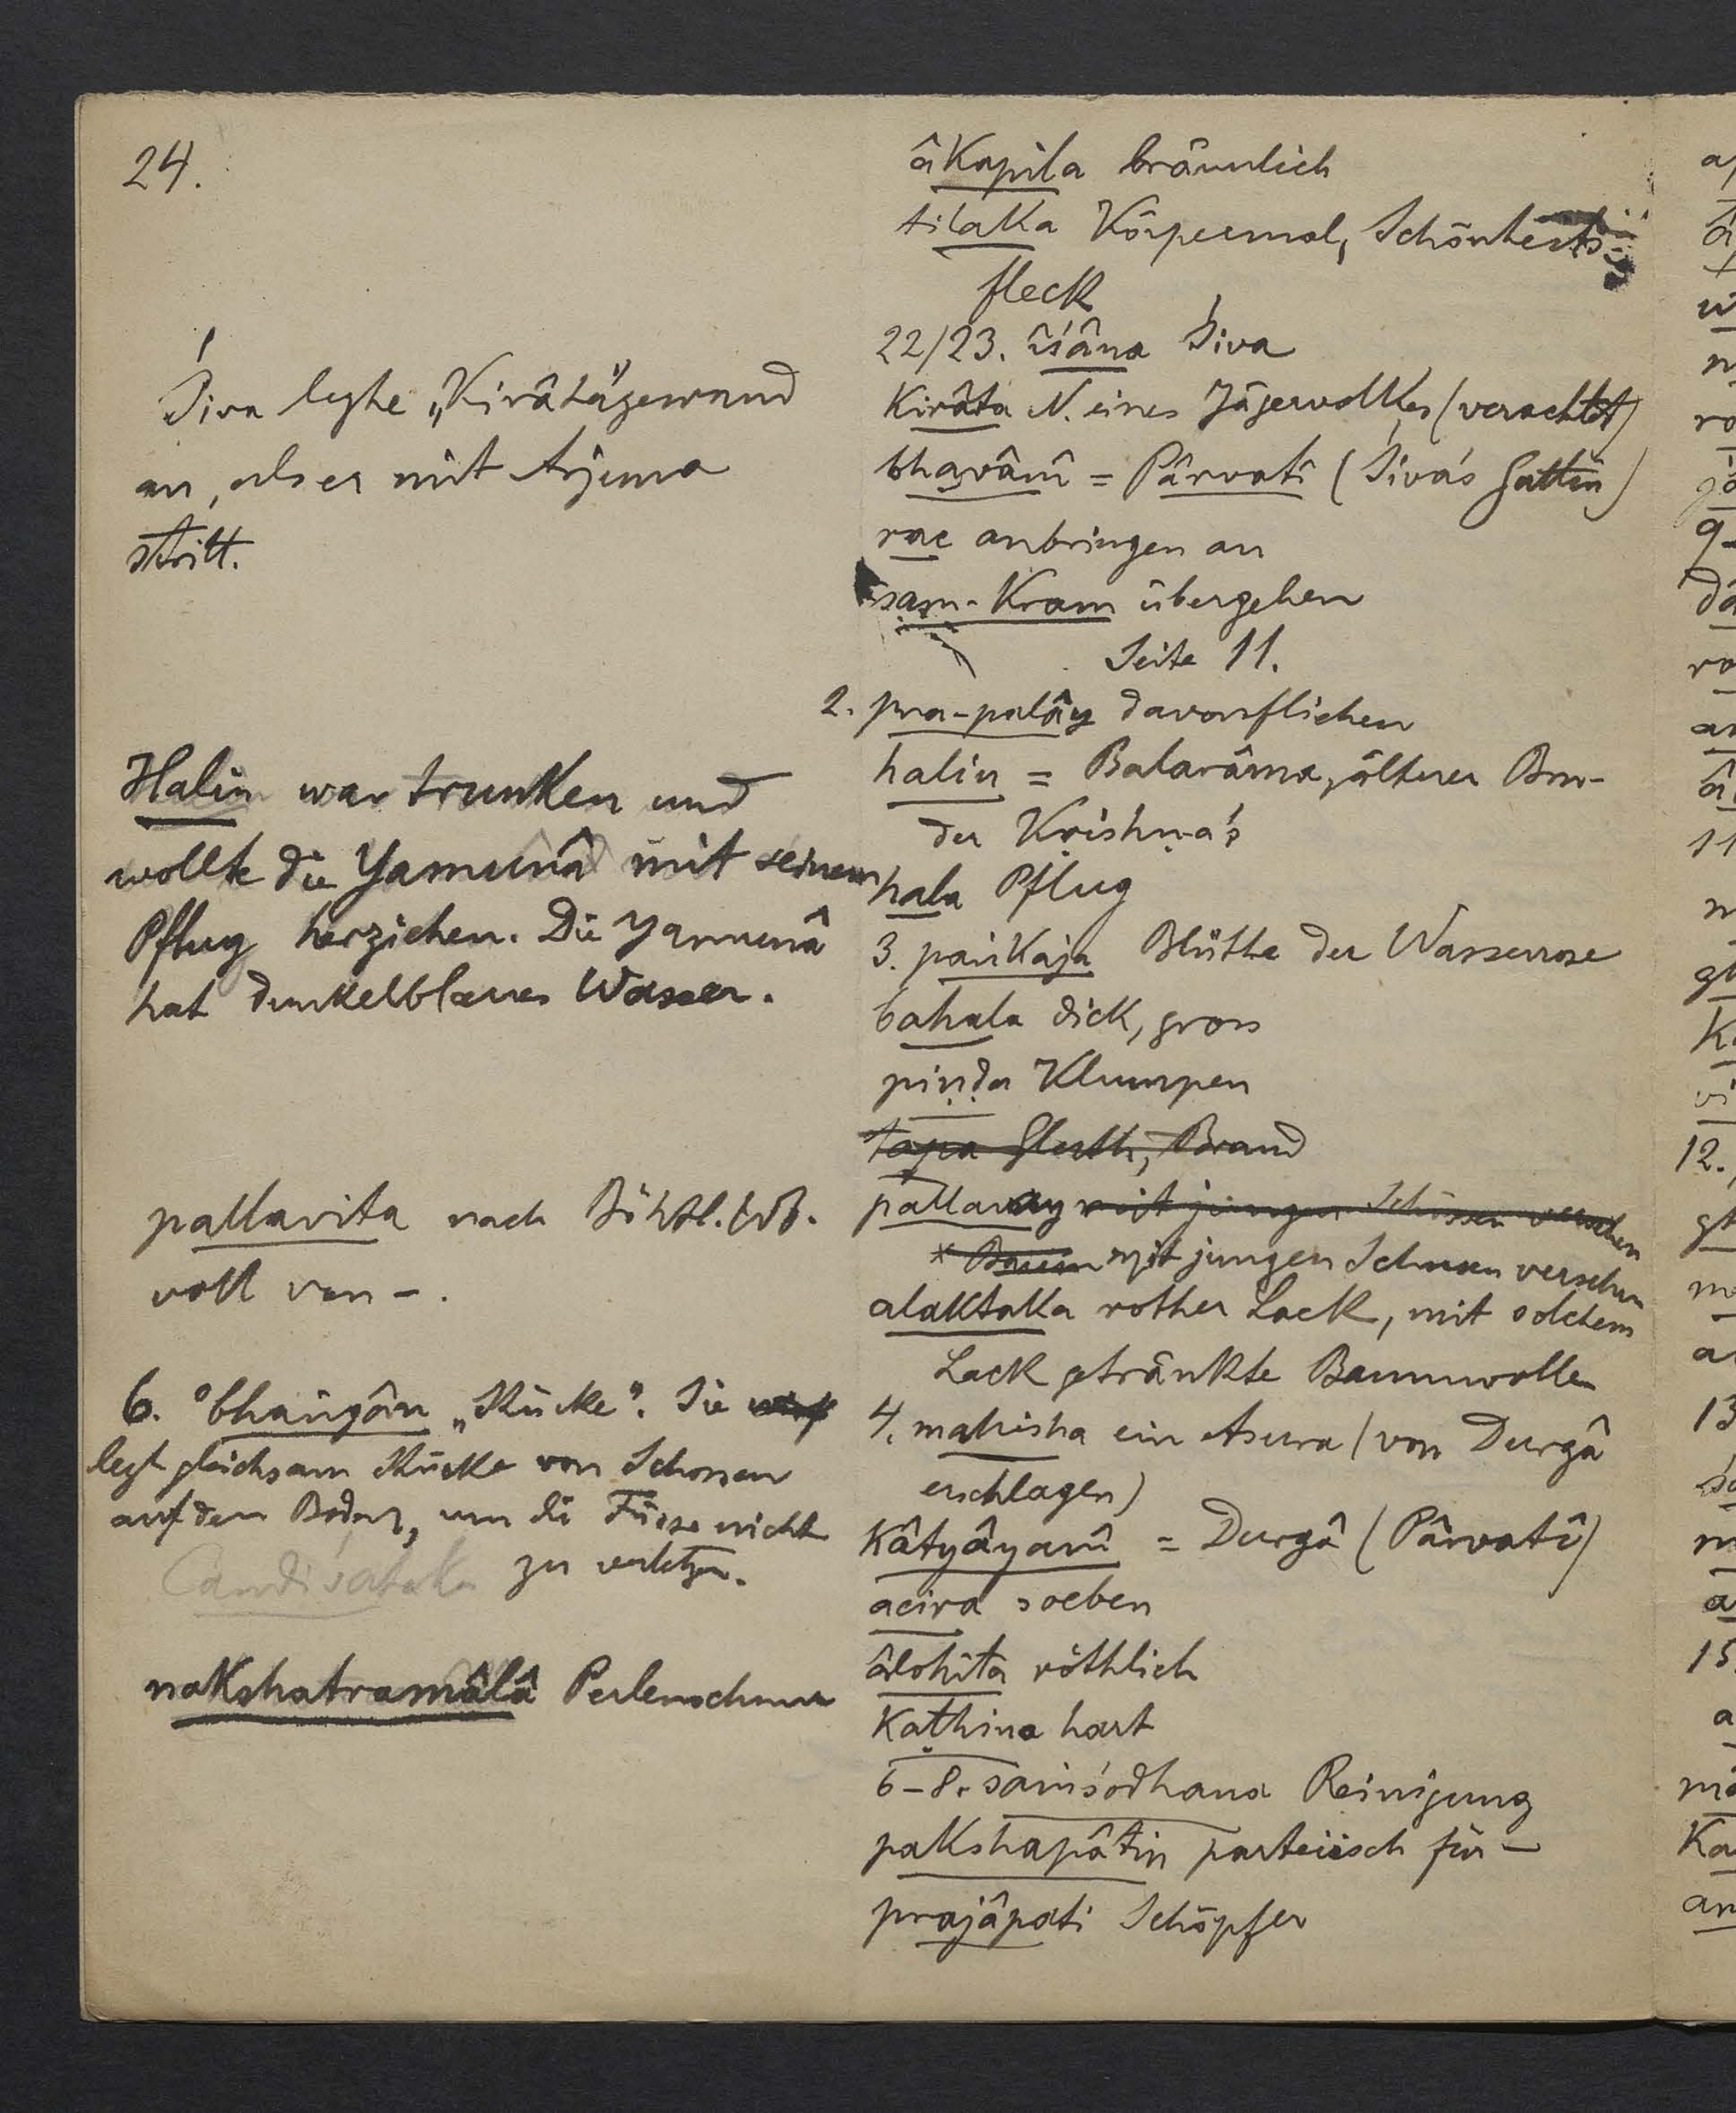 24.
Śiva legte „Kirâta"gewand
an, als er mit Arjuna
stritt.
Halin war trunken und
wollte die Yamunâ mit seinem
Pflug herziehen. Die Yamunâ
hat dunkelblaues Wasser.
pallavita nach Böhtl. Wb.
voll von –.
6. °bhangân „Stücke". Sie
legt gleichsam Stücke von Schossen
auf den Boden, um die Füsse nicht
zu verletzen.
Candiśataka
nakshatramâlâ Perlenschnur
âkapila bräunlich
tilaka Körpermal, Schönheits-
fleck
22/23. îśâna Śiva
Kirâta N. eines Jägervolkes (verachtet)
bhavânî = Pârvatî (Śiva's Gattin)
rac anbringen an
sam-kram übergehen
Seite 11.
2. pra-palây davonfliehen
halin = Balarâma, älterer Bru-
der Kṛishṇa's
hala Pflug
3. paṅkaja Blüthe der Wasserrose
bahala dick, gross
piṇḍa Klumpen
tapa Gluth, Brand
pallavay mit jungen Schossen versehen
* mit jungen Schossen versehen
alaktaka rother Lack, mit solchem
Lack getränkte Baumwolle
4. mahisha ein Asura (von Durgâ
erschlagen)
Kâtyâyanî = Durgâ (Pârvatî)
acira soeben
âlohita röthlich
kaṭhina hart
6-8. saṁśodhana Reinigung
pakshapâtin parteiisch für –
prajâpati Schöpfer